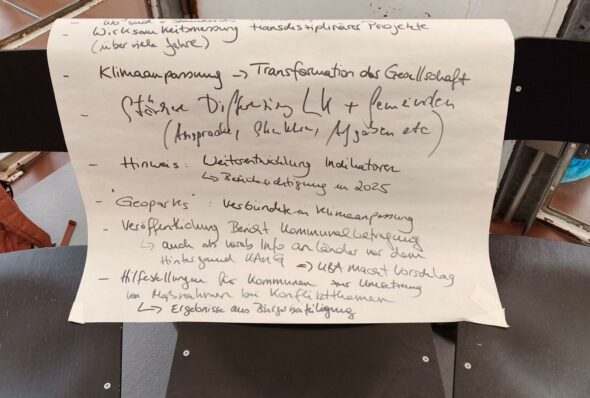 - Wo sind
- Wirksamkeitsmessung transdisziplinärer Projekte
(über viele Jahre)
- Klimaanpassung → Transformation der Gesellschaft
- Stärkere Differenzierung LK + Gemeinden
(Ansprache, Strukturen, Aufgaben etc)
- Hinweis: Weiterentwicklung Indikatoren
↳ Berücksichtigung in 2025
- "Geoparks": Verbündete in Klimaanpassung
- Veröffentlichung Bericht Kommunalbefragung
↳ auch als vorab Info an Länder vor dem
Hintergrund KAnG ⇒ UBA macht Vorschlag
- Hilfestellungen für Kommunen zur Umsetzung
von Maßnahmen bei Konfliktthemen
↳ Ergebnisse aus Bürgerbeteiligung